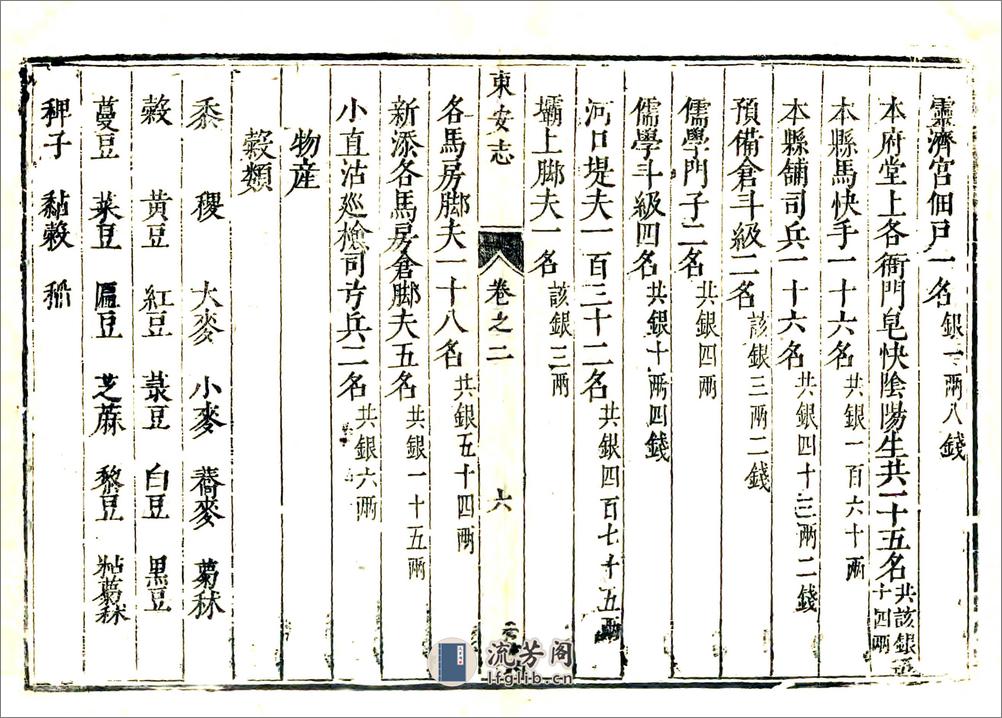 靈濟宮佃戶一名銀一兩八錢
本府堂上各衙門皂快陰陽生共二十五名共該銀十四兩
本縣馬快手一十六名共銀一百六十兩
本縣舖司兵一十六名共銀四十三兩二錢
預備倉斗級二名該銀三兩二錢
儒學門子二名共銀四兩
儒學斗級四名共銀十兩四錢
河口堤夫一百三十二名共銀四百七十五兩
壩上脚夫一名該銀三兩
東安志 卷之二 六
各馬房脚夫一十八名共銀五十四兩
新添各馬房倉脚夫五名共銀一十五兩
小直沽廵檢司弓兵二名共銀六兩
物産
穀類
黍 稷 大麥 小麥 蕎麥 蒭秫
穀 黃豆 紅豆 菉豆 白豆 黒豆
蔓豆 菜豆 匾豆 芝蔴 黎豆 粘蒭秫
稗子 黏穀 稻
流芳阁
lfglib.cn